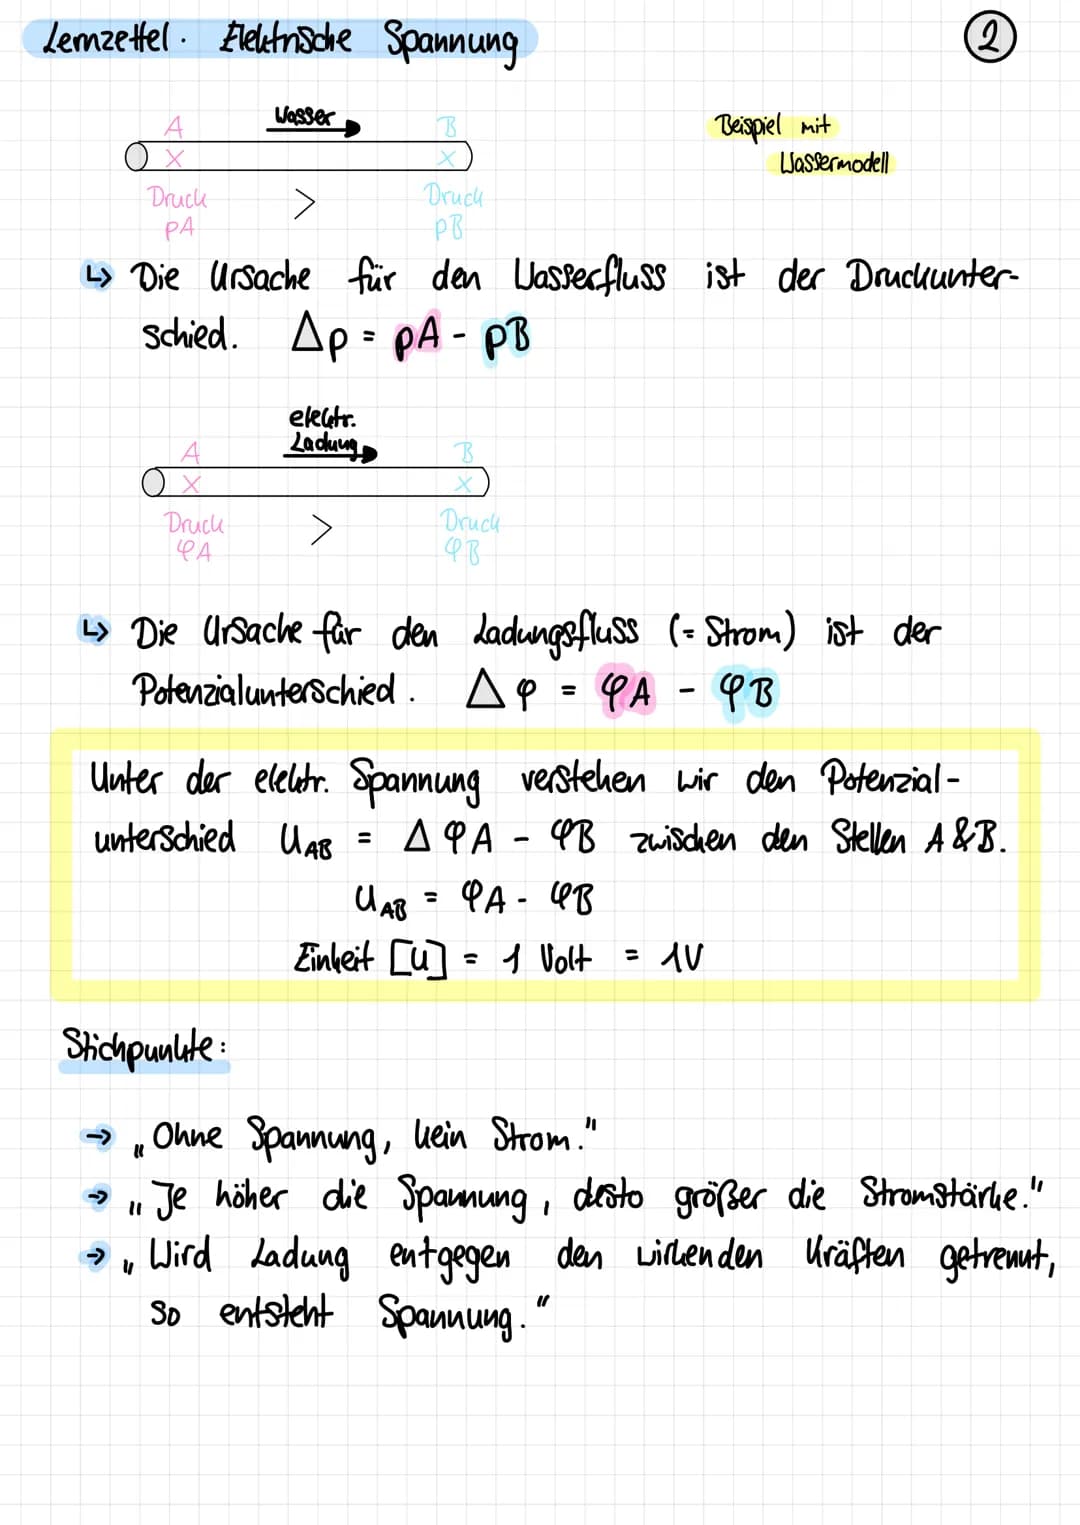 Lernzettel. Elektrische Spannung
2
Wasser
A
B
Beispiel mit
Wassermodell
X
X
Druck
>
Druck
pA
pB
↳ Die Ursache für den Wasserfluss ist der Druckunter-
schied. Δp = pA - pB
elektr.
Ladung
A
B
X
X
Druck
>
Druck
φA
φB
↳ Die Ursache für den Ladungsfluss (= Strom) ist der
Potenzialunterschied. Δφ = φA - φB
Unter der elektr. Spannung verstehen wir den Potenzial-
unterschied U_AB = ΔφA - φB zwischen den Stellen A & B.
U_AB = φA - φB
Einheit [U] = 1 Volt = 1V
Stichpunkte:
→ „Ohne Spannung, kein Strom."
→ „Je höher die Spannung, desto größer die Stromstärke."
→ „Wird Ladung entgegen den wirkenden Kräften getrennt,
so entsteht Spannung."